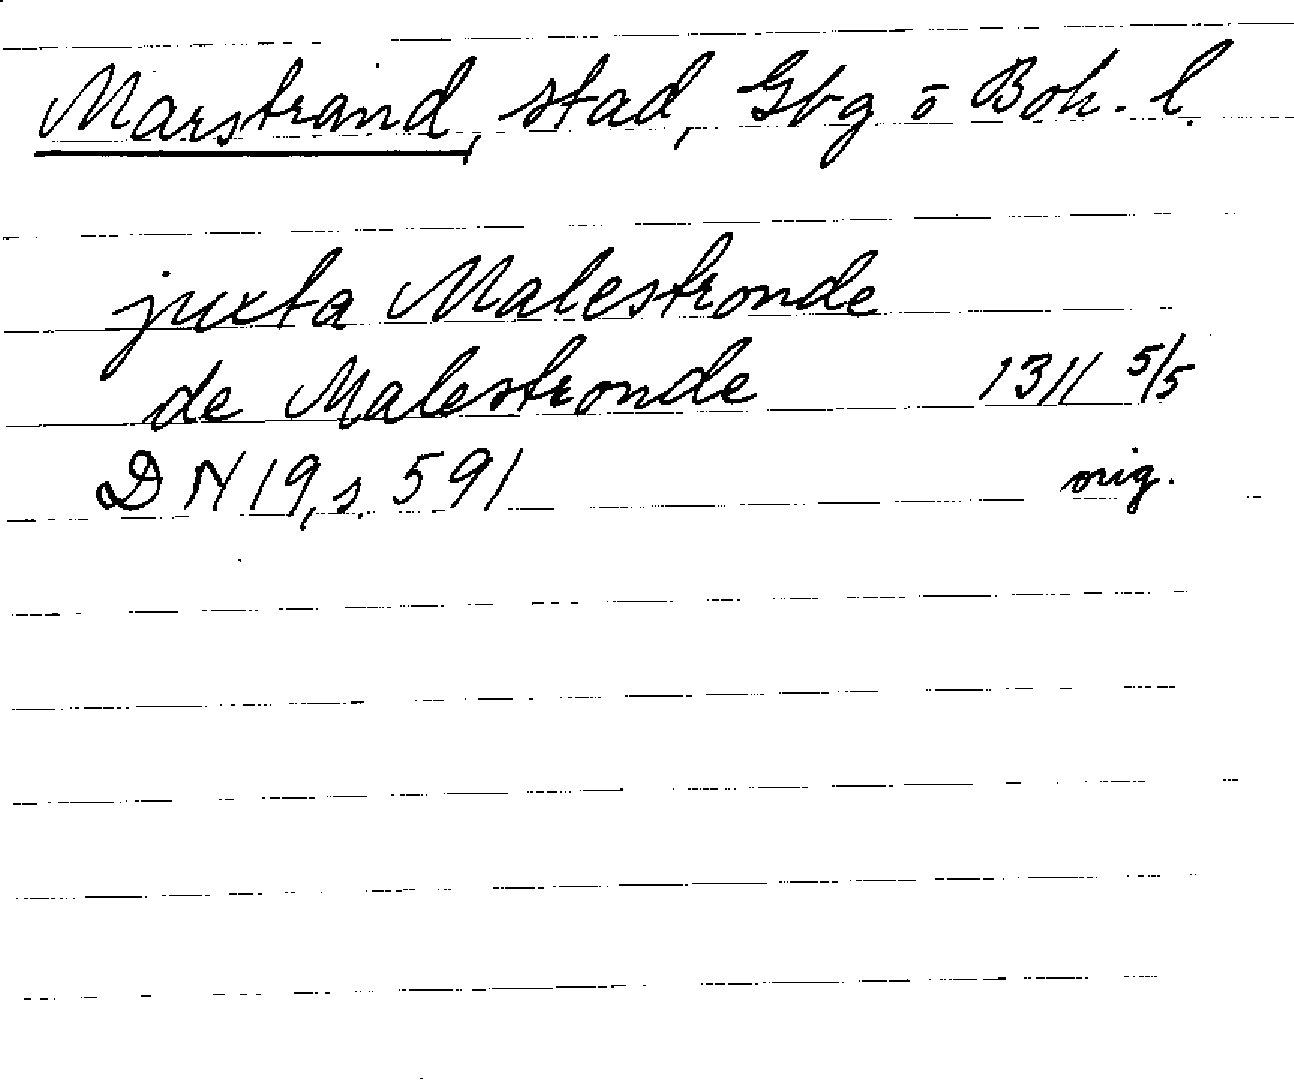 Marstrand, stad, Gbg o Boh. l.
juxta Malestronde
de Malestronde 1311 5/5
DN 19, s. 591 orig.